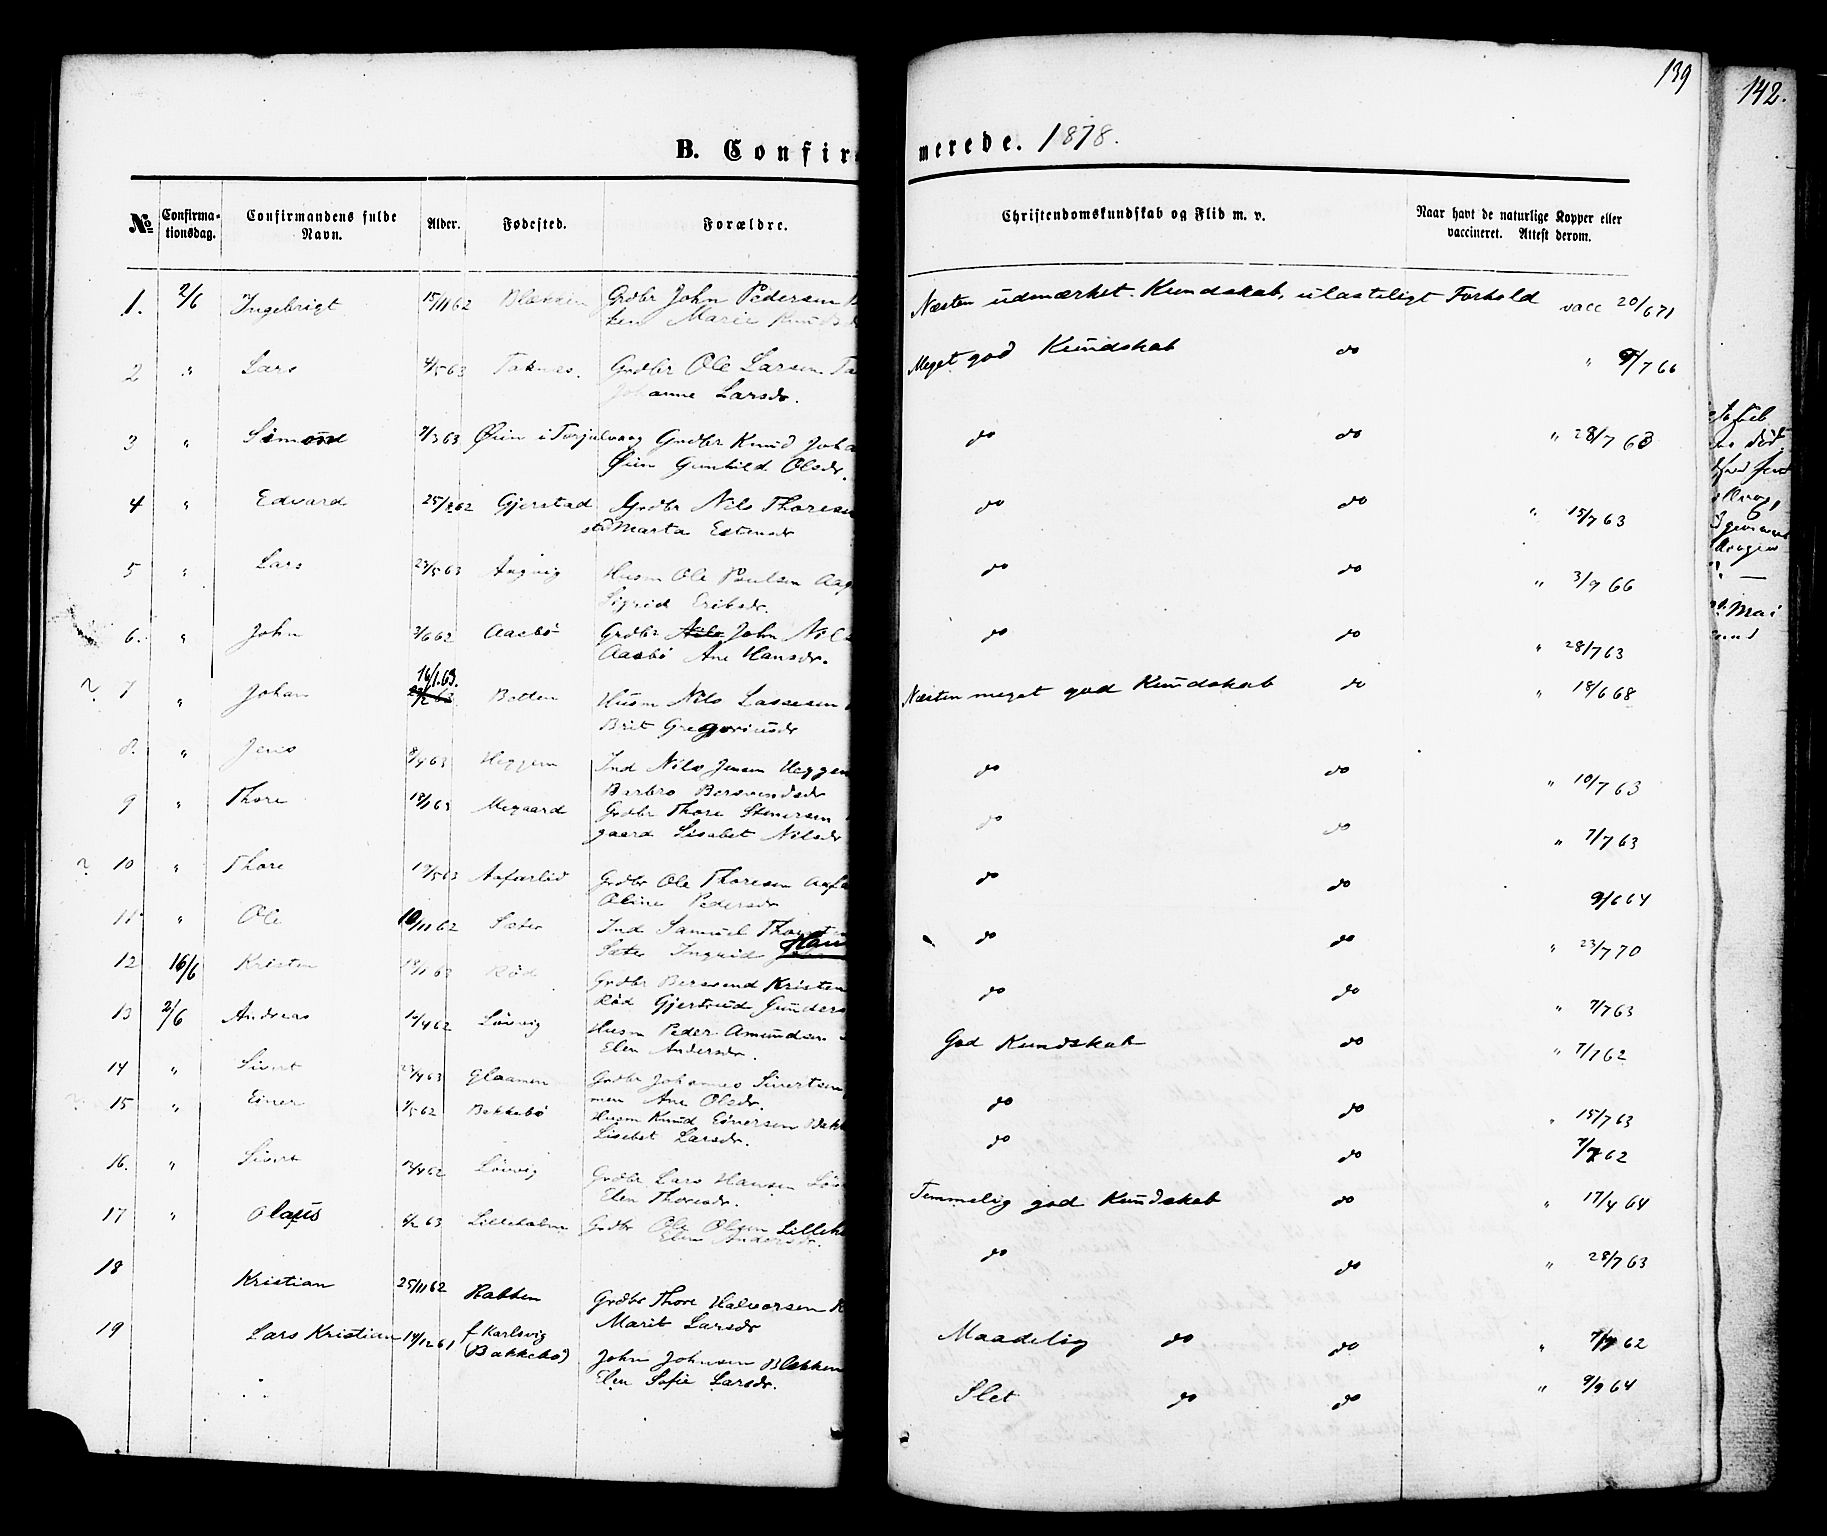 139
142.
B. Confir
merede. 1878.
No Confirma-tionsdag. Confirmandens fulde Navn. Alder. Fødested. Forældre. Christendomskundskab og Flid m. v. Naar havt de naturlige Kopper eller vaccineret. Attest derom.
1. 2/6 Ingebrigt 15/11 62 Blekken Grdbr John Pedersen Næsten udmærket Kundskab, ulasteligt Forhold vacc 20/6 71
ken Marie Knuds
2 " Lars 4/5 63 Taknes. Grdbr Ole Larsen Ta Meget god Kundskab do " 9/7 66
Johanne Larsdr.
3 " Simond 3/3 63 Øien i Torjulvaag Grdbr Knud Joha do do " 28/7 63
Øien Gunhild Olsdr.
4 " Edvard 25/12 62 Gjerstad Grdbr Nils Thoresen do do " 15/7 63
stad Marta Estensdr
5 " Lars 23/5 63 Angvig Husm Ole Poulsen do do " 3/9 66
Sigrid Eriksdr.
6. " John 3/6 62 Aasbø Grdbr Nils John Nils do do " 28/7 63
Aasbø Ane Hansdr.
16/1. 63.
7 " Johan Botten Husm Nils Lassesen Næsten meget god Kundskab do " 18/6 68
Brit Gregoriusdr
8. " Jens 8/4 63 Heggem Ind Nils Jensen Heggem do do " 10/7 63
Berbro Bersvendsdr
9 " Thore 18/1 63 Megaard Grdbr Thore Stenersen do do " 7/7 63
gaard Lisabet Nilsdr
10 " Thore 19/5 63 Aafarlid Grdbr Ole Thoresen Aafa do do 9/6 64
Oline Pedersdr
11 " Ole 10/11 62 Sæter Ind Samuel Thorsten do do " 23/7 70
Sæter Ingrid Han
12 16/6 Kristen 19/1 63 Rød Grdbr Bersvend Kristen do do " 7/7 63
Rød Gjertrud Gunders
13 2/6 Andreas 12/4 62 Løvvig Husm Peder Amundsen God Kundskab do " 7/7 62
Elen Andersdr.
14 " Sivert 23/4 63 Glaamen Grdbr Johannes Sivertsen do do " 15/7 63
men Ane Olsdr.
15 " Einer 1/5 62 Bakkebø Husm Knud Einersen Bakk do do 7/7 62
Lisabet Larsdr.
16. " Sivert 12/4 62 Løvvig Grdbr Lars Hansen Løv Temmelig god Kundskab do " 17/4 64
Elen Thoresdr.
17 " Olaus 4/2 63 Lilleholm Grdbr Ole Olsen Lilleh do do " 28/7 63
Elen Andersdr.
18 Kristian 25/11 62 Rabben Grdbr Thore Halvorsen R Maadelig do do " 7/7 62
Marit Larsdr
19 Lars Kristian 14/12 61 f Karlsvig John Johnsen Blekken Slet do do " 9/9 64
(Bakkebø) Elen Sofie Larsdr.